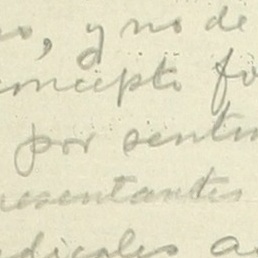 o, y no de
concepto fo
por senti
resentantes
dicales a